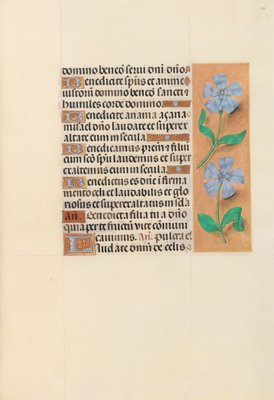 domino benco serui dni dno
Benedicite spūs et anime
iustorum domino bene sancti &
humiles corde domino
Benedicite anania açaria
misael dño laudate et superex
altate eum in secula
Benedicamus prem & filiū
cum scō spū laudemus et super
exaltemus eum in secula
Benedictus es dñe ī firma
mento celi et laudabilis et glo
riosus et superexaltatus in scla
Añ. Benedicta filia tu a dño
quia per te fructū vite cōmuni
cauimus. Añ. pulcra es
Laudate dnm̄ de celis